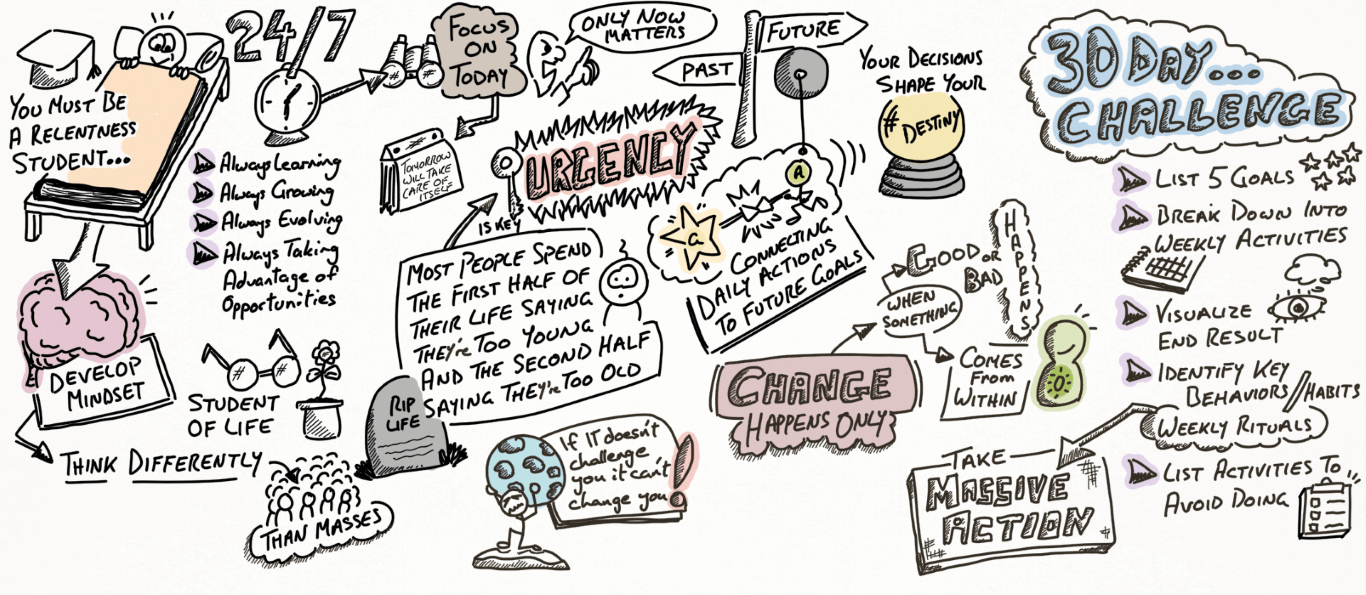 YOU MUST BE
A RELENTNESS
STUDENT...
24/7
Always Learning
Always Growing
Always Evolving
Always Taking
Advantage of
Opportunities
DEVELOP
MINDSET
THINK DIFFERENTLY
THAN MASSES
STUDENT
OF LIFE
FOCUS
ON
TODAY
TOMORROW
WILL TAKE
CARE OF
ITSELF
ONLY NOW
MATTERS
URGENCY
IS KEY
MOST PEOPLE SPEND
THE FIRST HALF OF
THEIR LIFE SAYING
THEY're TOO YOUNG
AND THE SECOND HALF
SAYING THEY're TOO OLD
RIP
LIFE
If IT doesn't
challenge
you it can't
change you!
FUTURE
PAST
a
a
CONNECTING
DAILY ACTIONS
TO FUTURE GOALS
YOUR DECISIONS
SHAPE YOUR
# DESTINY
CHANGE
HAPPENS ONLY
WHEN
SOMETHING
GOOD OR
BAD
HAPPENS
COMES
FROM
WITHIN
30 DAY...
CHALLENGE
LIST 5 GOALS
BREAK DOWN INTO
WEEKLY ACTIVITIES
VISUALIZE
END RESULT
IDENTIFY KEY
BEHAVIORS//HABITS
WEEKLY RITUALS
LIST ACTIVITIES TO
AVOID DOING
TAKE
MASSIVE
ACTION